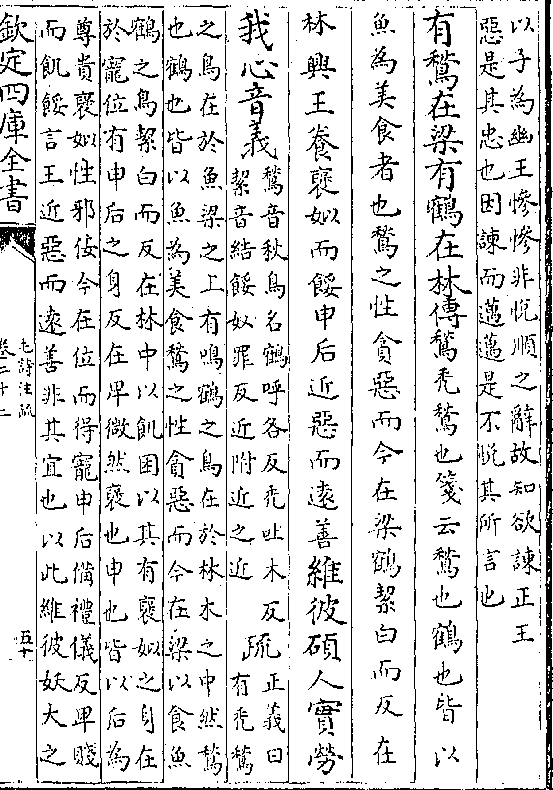 以子為幽王慘慘非悅順之辭故知欲諫正王
惡是其忠也因諫而邁邁是不悅其所言也
有鶖在梁有鶴在林傳鶖禿鶖也箋云鶖也鶴也皆以
魚為美食者也鶖之性貪惡而今在梁鶴絜白而反在
林興王養襃姒而餒申后近惡而遠善維彼碩人實勞
我心音義
鶖音秋鳥名鶴呼各反禿吐木反
絜音結餒奴罪反近附近之近
疏
正義曰
有禿鶖
之鳥在於魚梁之上有鳴鶴之鳥在於林木之中然鶖
也鶴也皆以魚為美食鶖之性貪惡而今在梁以食魚
鶴之鳥絜白而反在林中以飢困以其有襃姒之身在
於寵位有申后之身反在卑微然襃也申也皆以后為
尊貴襃姒性邪佞今在位而得寵申后備禮儀反卑賤
而飢餒言王近惡而遠善非其宜也以此維彼妖大之
欽定四庫全書
毛詩注疏
卷二十二
五十